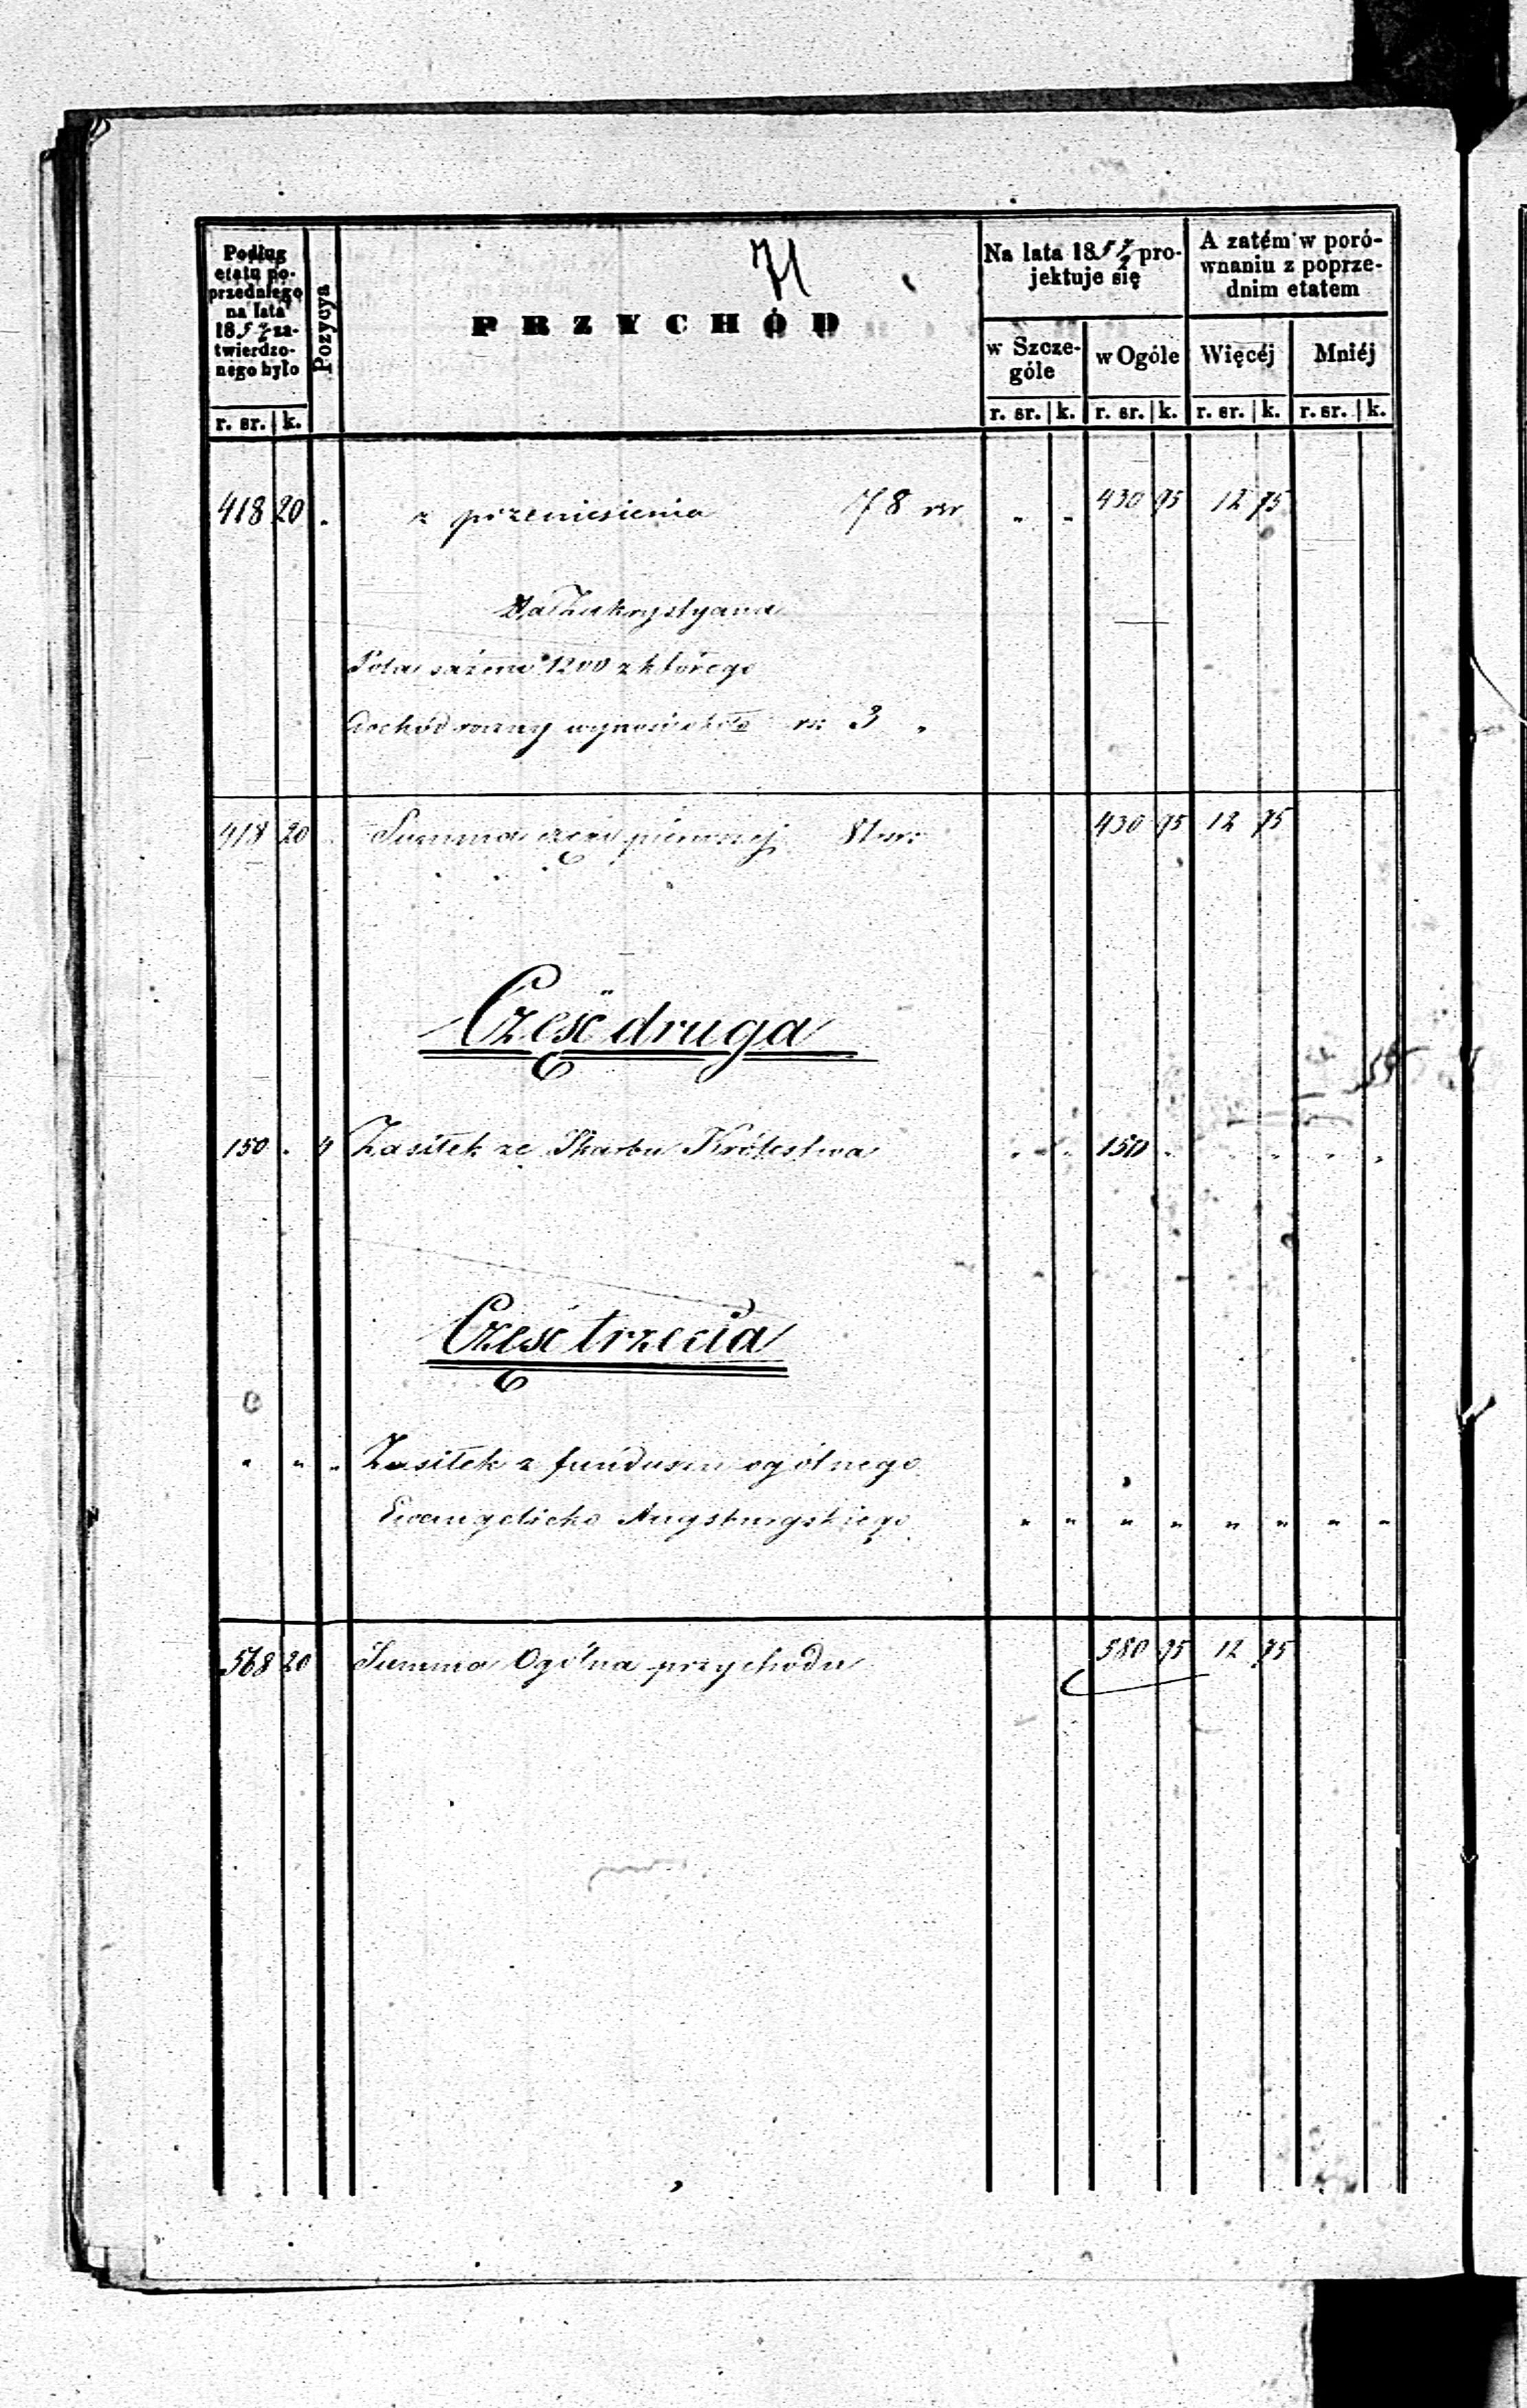 Podług
etatu po-
przedniego
na lata
18 5 za-
twierdzo-
nego było
r. sr. k.
Pozycya
PRZYCHÓD
Na lata 18 5 pro-
jektuje się
w Szcze-
góle
w Ogóle
r. sr. k. r. sr. k.
A zatém w poró-
wnaniu z poprze-
dnim etatem
Więcéj Mniéj
r. sr. k. r. sr. k.
418 20 . z przeniesienia 78 rsr " " 430 95 12 75
Dla Zakrystyana
Pola sażeni 1200 z którego
dochód roczny wynosi około rs 3 "
418 20 Summa części pierwszej 81 rsr 430 95 12 75
Częsć druga
150 . 4 Zasiłek ze Skarbu Królestwa " " 150 " " " " "
Częsć trzecia
" " " Zasiłek z funduszu ogólnego
Ewangelicko Augsburgskiego " " " " " " " "
568 20 Summa Ogólna przychodu 580 95 12 75